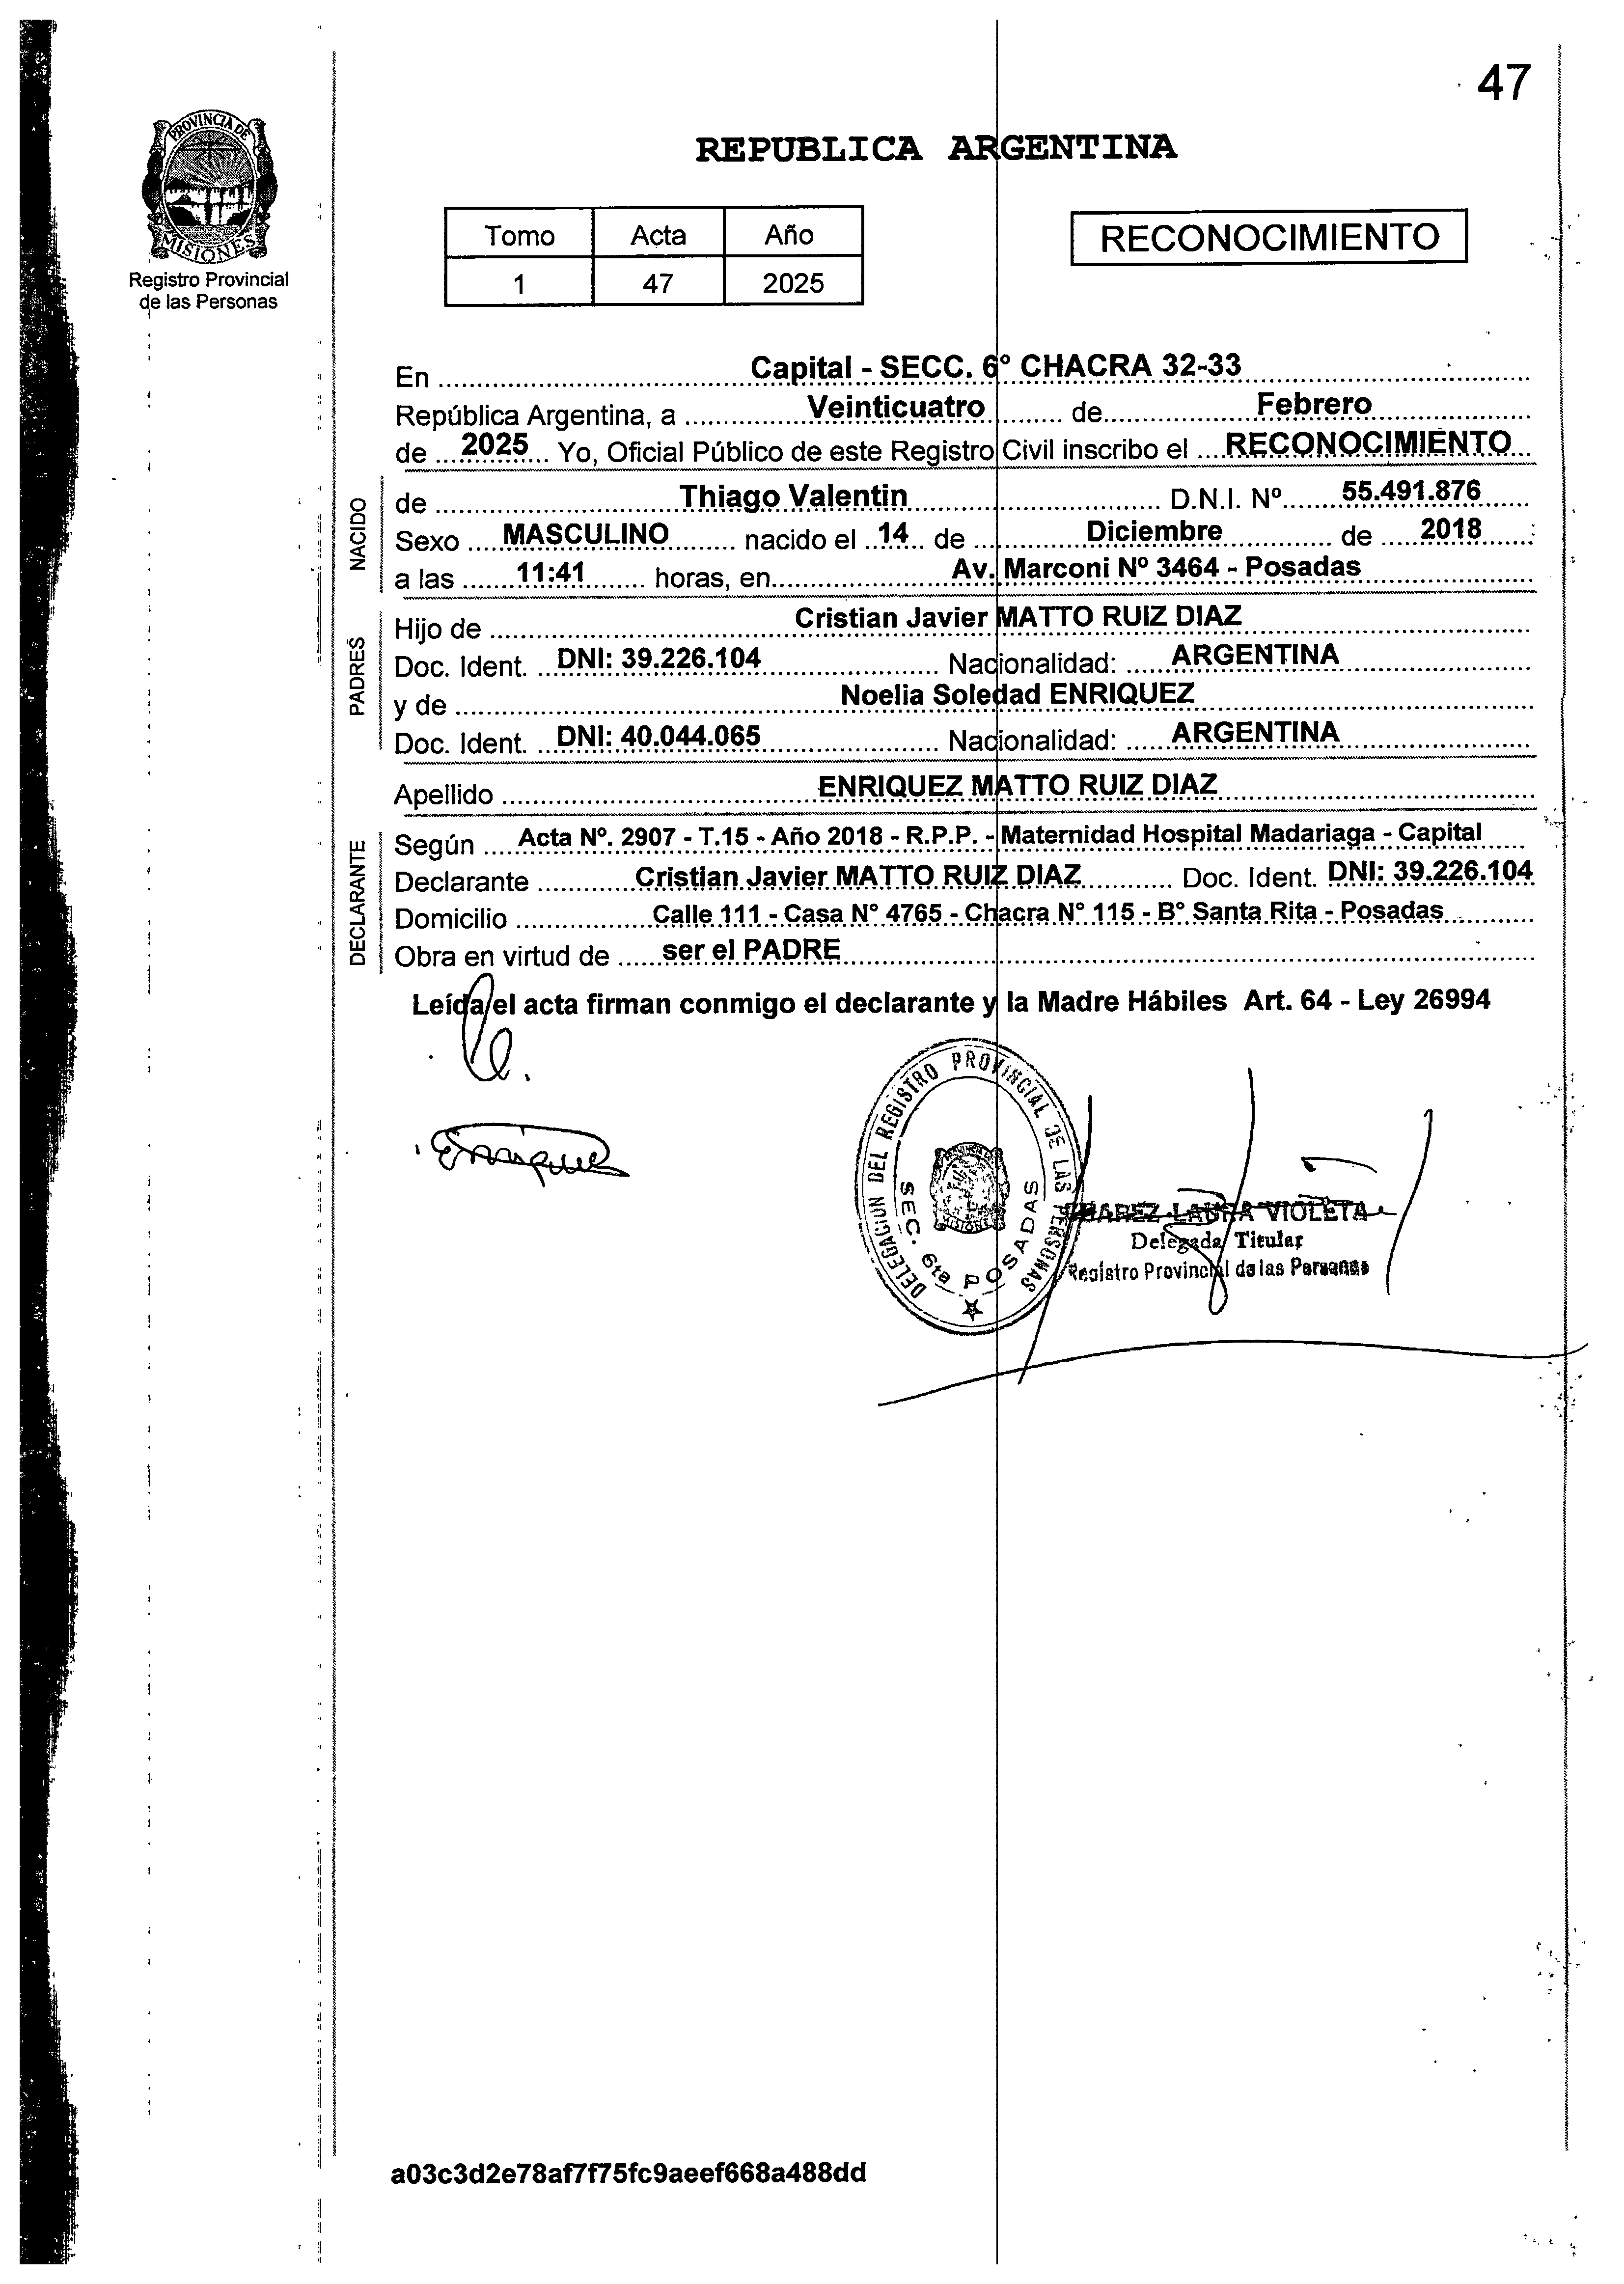 47
PROVINCIA DE
MISIONES
Registro Provincial
de las Personas
REPUBLICA ARGENTINA
Tomo Acta Año
1 47 2025
RECONOCIMIENTO
En Capital - SECC. 6° CHACRA 32-33
República Argentina, a Veinticuatro de Febrero
de 2025 Yo, Oficial Público de este Registro Civil inscribo el RECONOCIMIENTO
NACIDO
de Thiago Valentin D.N.I. Nº 55.491.876
Sexo MASCULINO nacido el 14 de Diciembre de 2018
a las 11:41 horas, en Av. Marconi Nº 3464 - Posadas
PADRES
Hijo de Cristian Javier MATTO RUIZ DIAZ
Doc. Ident. DNI: 39.226.104 Nacionalidad: ARGENTINA
y de Noelia Soledad ENRIQUEZ
Doc. Ident. DNI: 40.044.065 Nacionalidad: ARGENTINA
Apellido ENRIQUEZ MATTO RUIZ DIAZ
DECLARANTE
Según Acta Nº. 2907 - T.15 - Año 2018 - R.P.P. - Maternidad Hospital Madariaga - Capital
Declarante Cristian Javier MATTO RUIZ DIAZ Doc. Ident. DNI: 39.226.104
Domicilio Calle 111 - Casa N° 4765 - Chacra N° 115 - B° Santa Rita - Posadas
Obra en virtud de ser el PADRE
Leída el acta firman conmigo el declarante y la Madre Hábiles Art. 64 - Ley 26994
Enriquez
DELEGACION DEL REGISTRO PROVINCIAL DE LAS PERSONAS
SEC. 6ta POSADAS
LAURA VIOLETA
Delegada Titular
Registro Provincial de las Personas
a03c3d2e78af7f75fc9aeef668a488dd